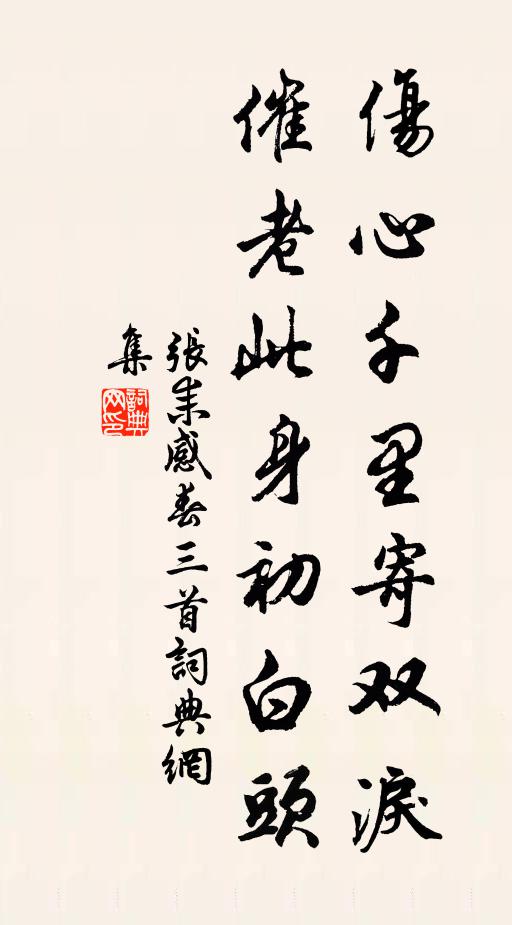 傷心千里寄双淚
催老此身初白頭
張耒感春三首詞典網
集
詞典网印